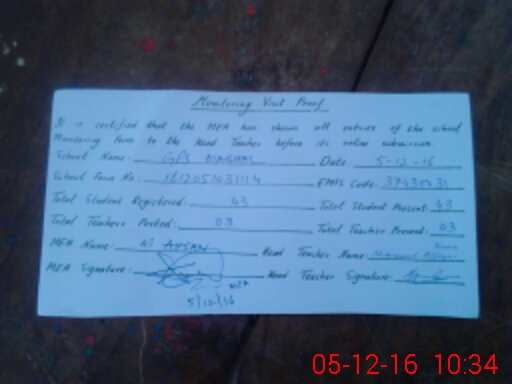 Monitoring Visit Proof
It is certified that the MEA has shown all entries of the school
Monitoring Form to the Head Teacher before its online submission.
School Name: GPS Date: 5-12-16
School Form No: EMIS Code:
Total Student Registered: 43 Total Student Present: 33
Total Teachers Posted: 03 Total Teacher Present: 03
MEA Name: M AHSAN Head Teacher Name: Muhammad
MEA Signature: Head Teacher Signature:
MEA
5/12/16
05-12-16 10:34